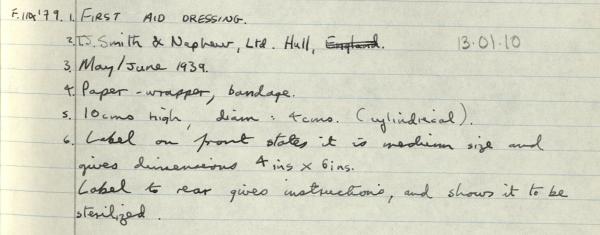 F.110x'79. 1. FIRST AID DRESSING.
2. T.J. Smith & Nephew, Ltd. Hull, England. 13.01.10
3. May/June 1939.
4. Paper-wrapper, bandage.
5. 10cms high, diam: 4cms. (cylindrical).
6. Label on front states it is medium size and
gives dimensions 4ins x 6ins.
Label to rear gives instructions, and shows it to be
sterilized.